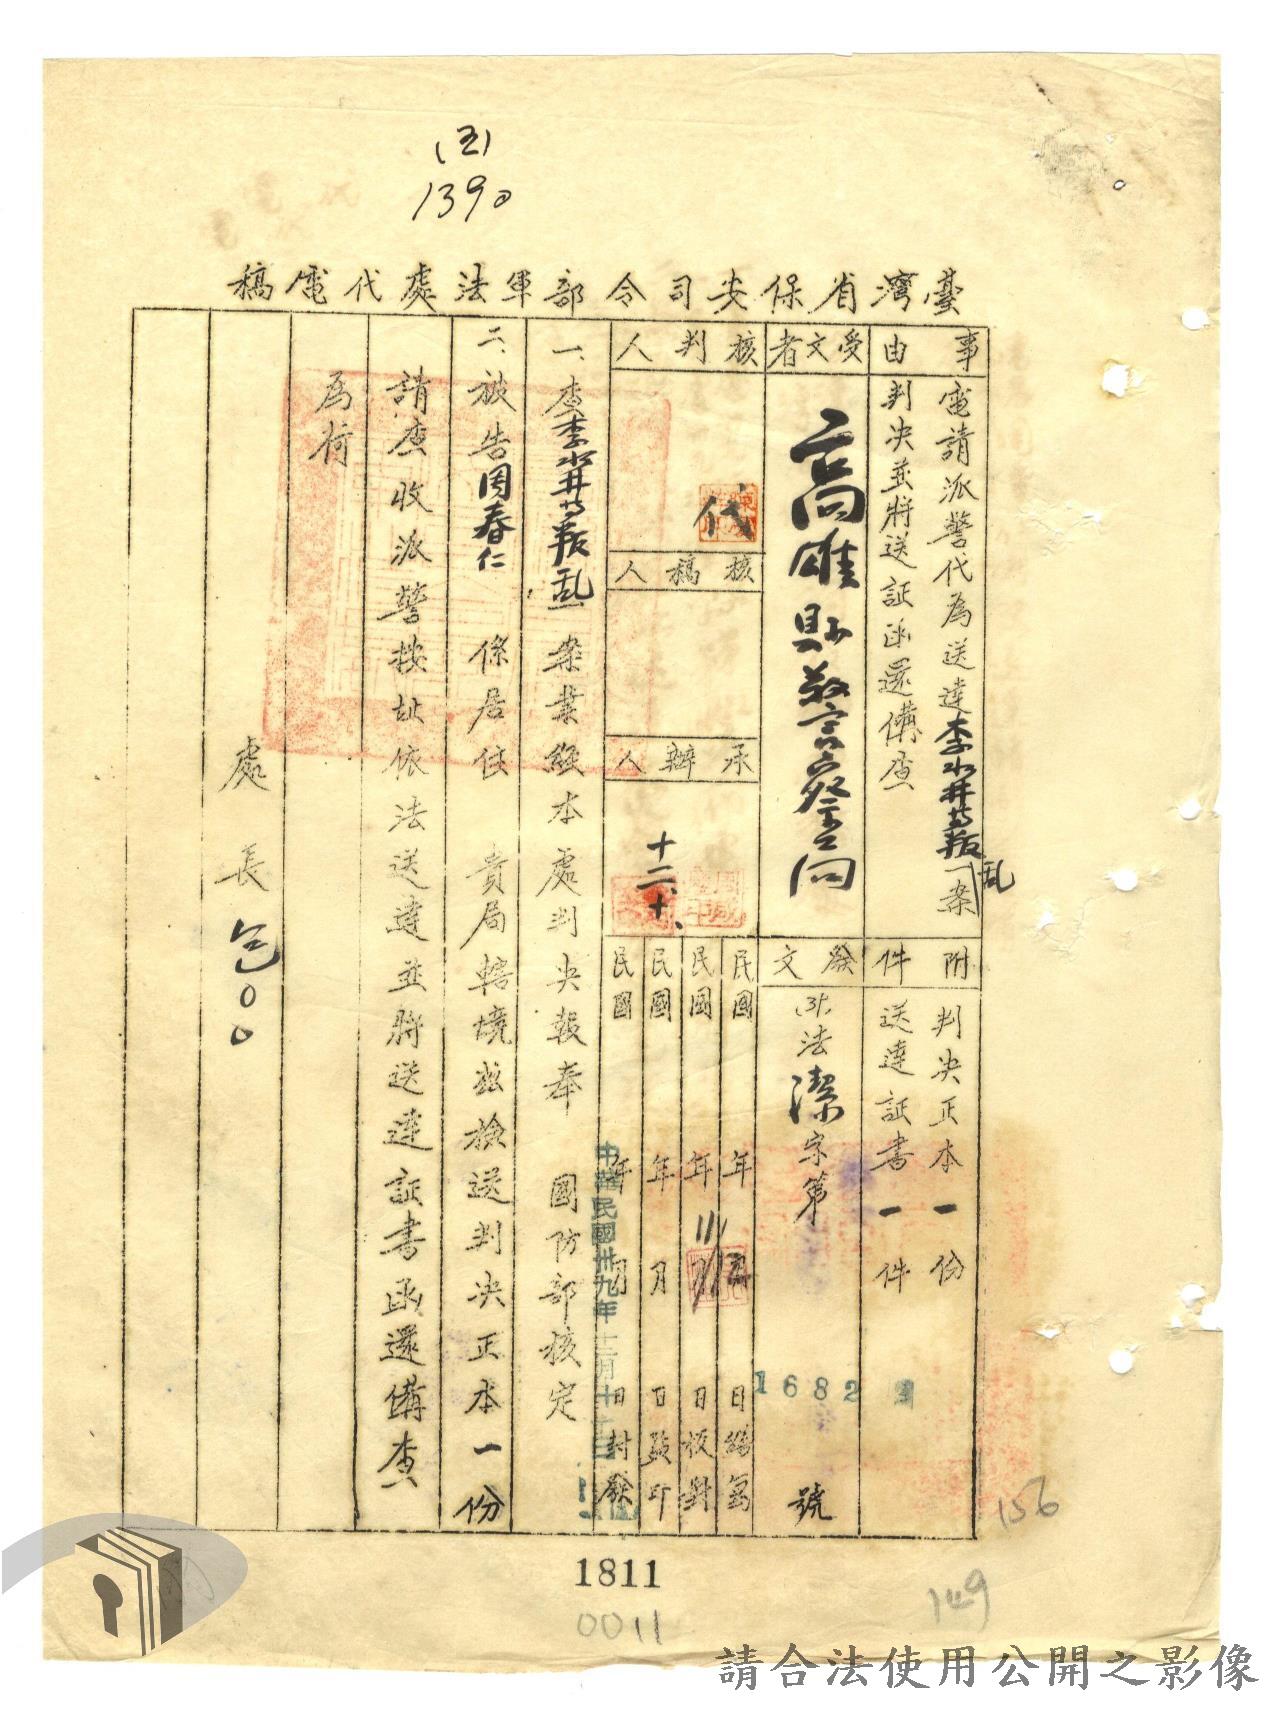 (五)
1390
臺灣省保安司令部軍法處代電稿
事由
電請派警代為送達李水井等叛乱一案
判決並將送証函還備查
附件
判決正本一份
送達証書一件
受文者
高雄縣警察局
發文
法潔字第
16822
號
核判人
代
核稿人
承辦人
十二、十、
民國 年 月 日繕寫
民國 年 月 日校對
民國 年 月 日蓋印
民國 年 月 日封發
中華民國卅九年十二月十
一、查李水井等叛乱一案業經本處判決報奉 國防部核定
二、被告周春仁 係居住 貴局轄境茲檢送判決正本一份
請查收派警按址依法送達並將送達証書函還備查
為荷
處長 包00
156
1811
0011
149
請合法使用公開之影像